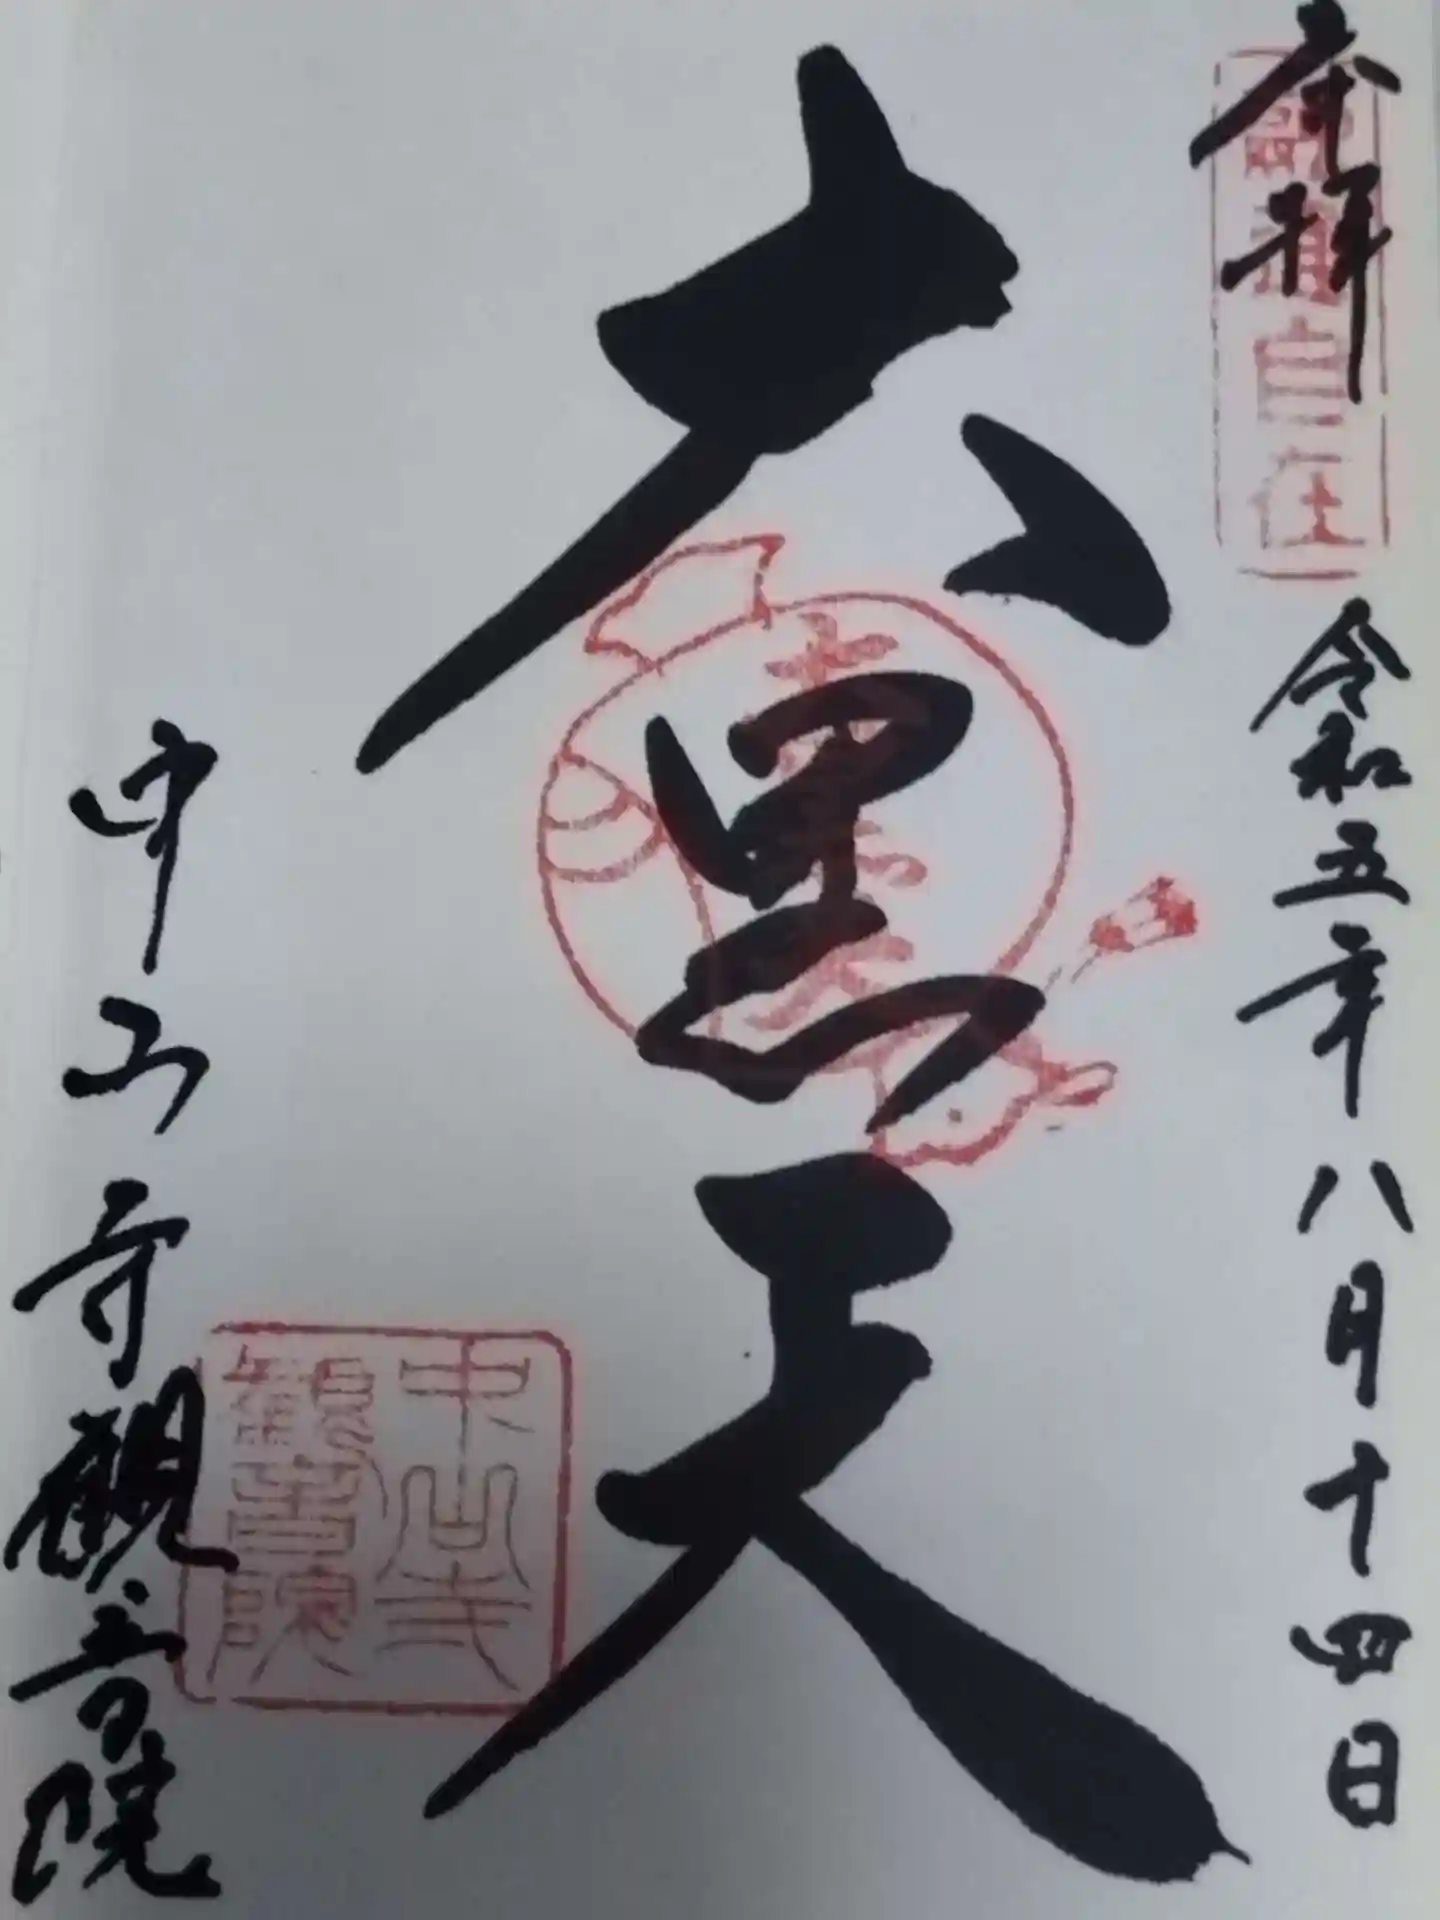 奉拝
令和五年八月十四日
大黒天
中山寺観音院
融通自在
中山寺
観音院